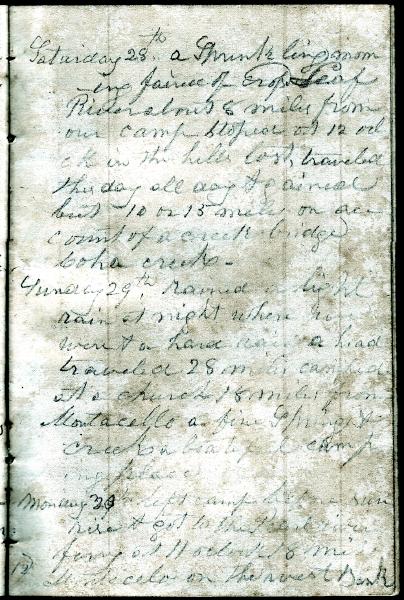 Saturday 28th a Sprinkling morn
ing faired of Crosed Leaf
River about 8 miles from
our camp stoped at 12 ocl
ck in the hills lost, traveled
this day all day & gained
but 10 or 15 miles on ac
count of a creek bridge
creek -
Sunday 29th, rained a light
rain at night where we
were & a hard rain a head
traveled 28 miles camped
at a church 18 miles from
Montacello a fine Spring &
creek a beatiful camp
ing place
Monday left camp before sun
rise & got to the Pearl river
ferry at 11 oclock 18 mi
Montecelo on the west Bank